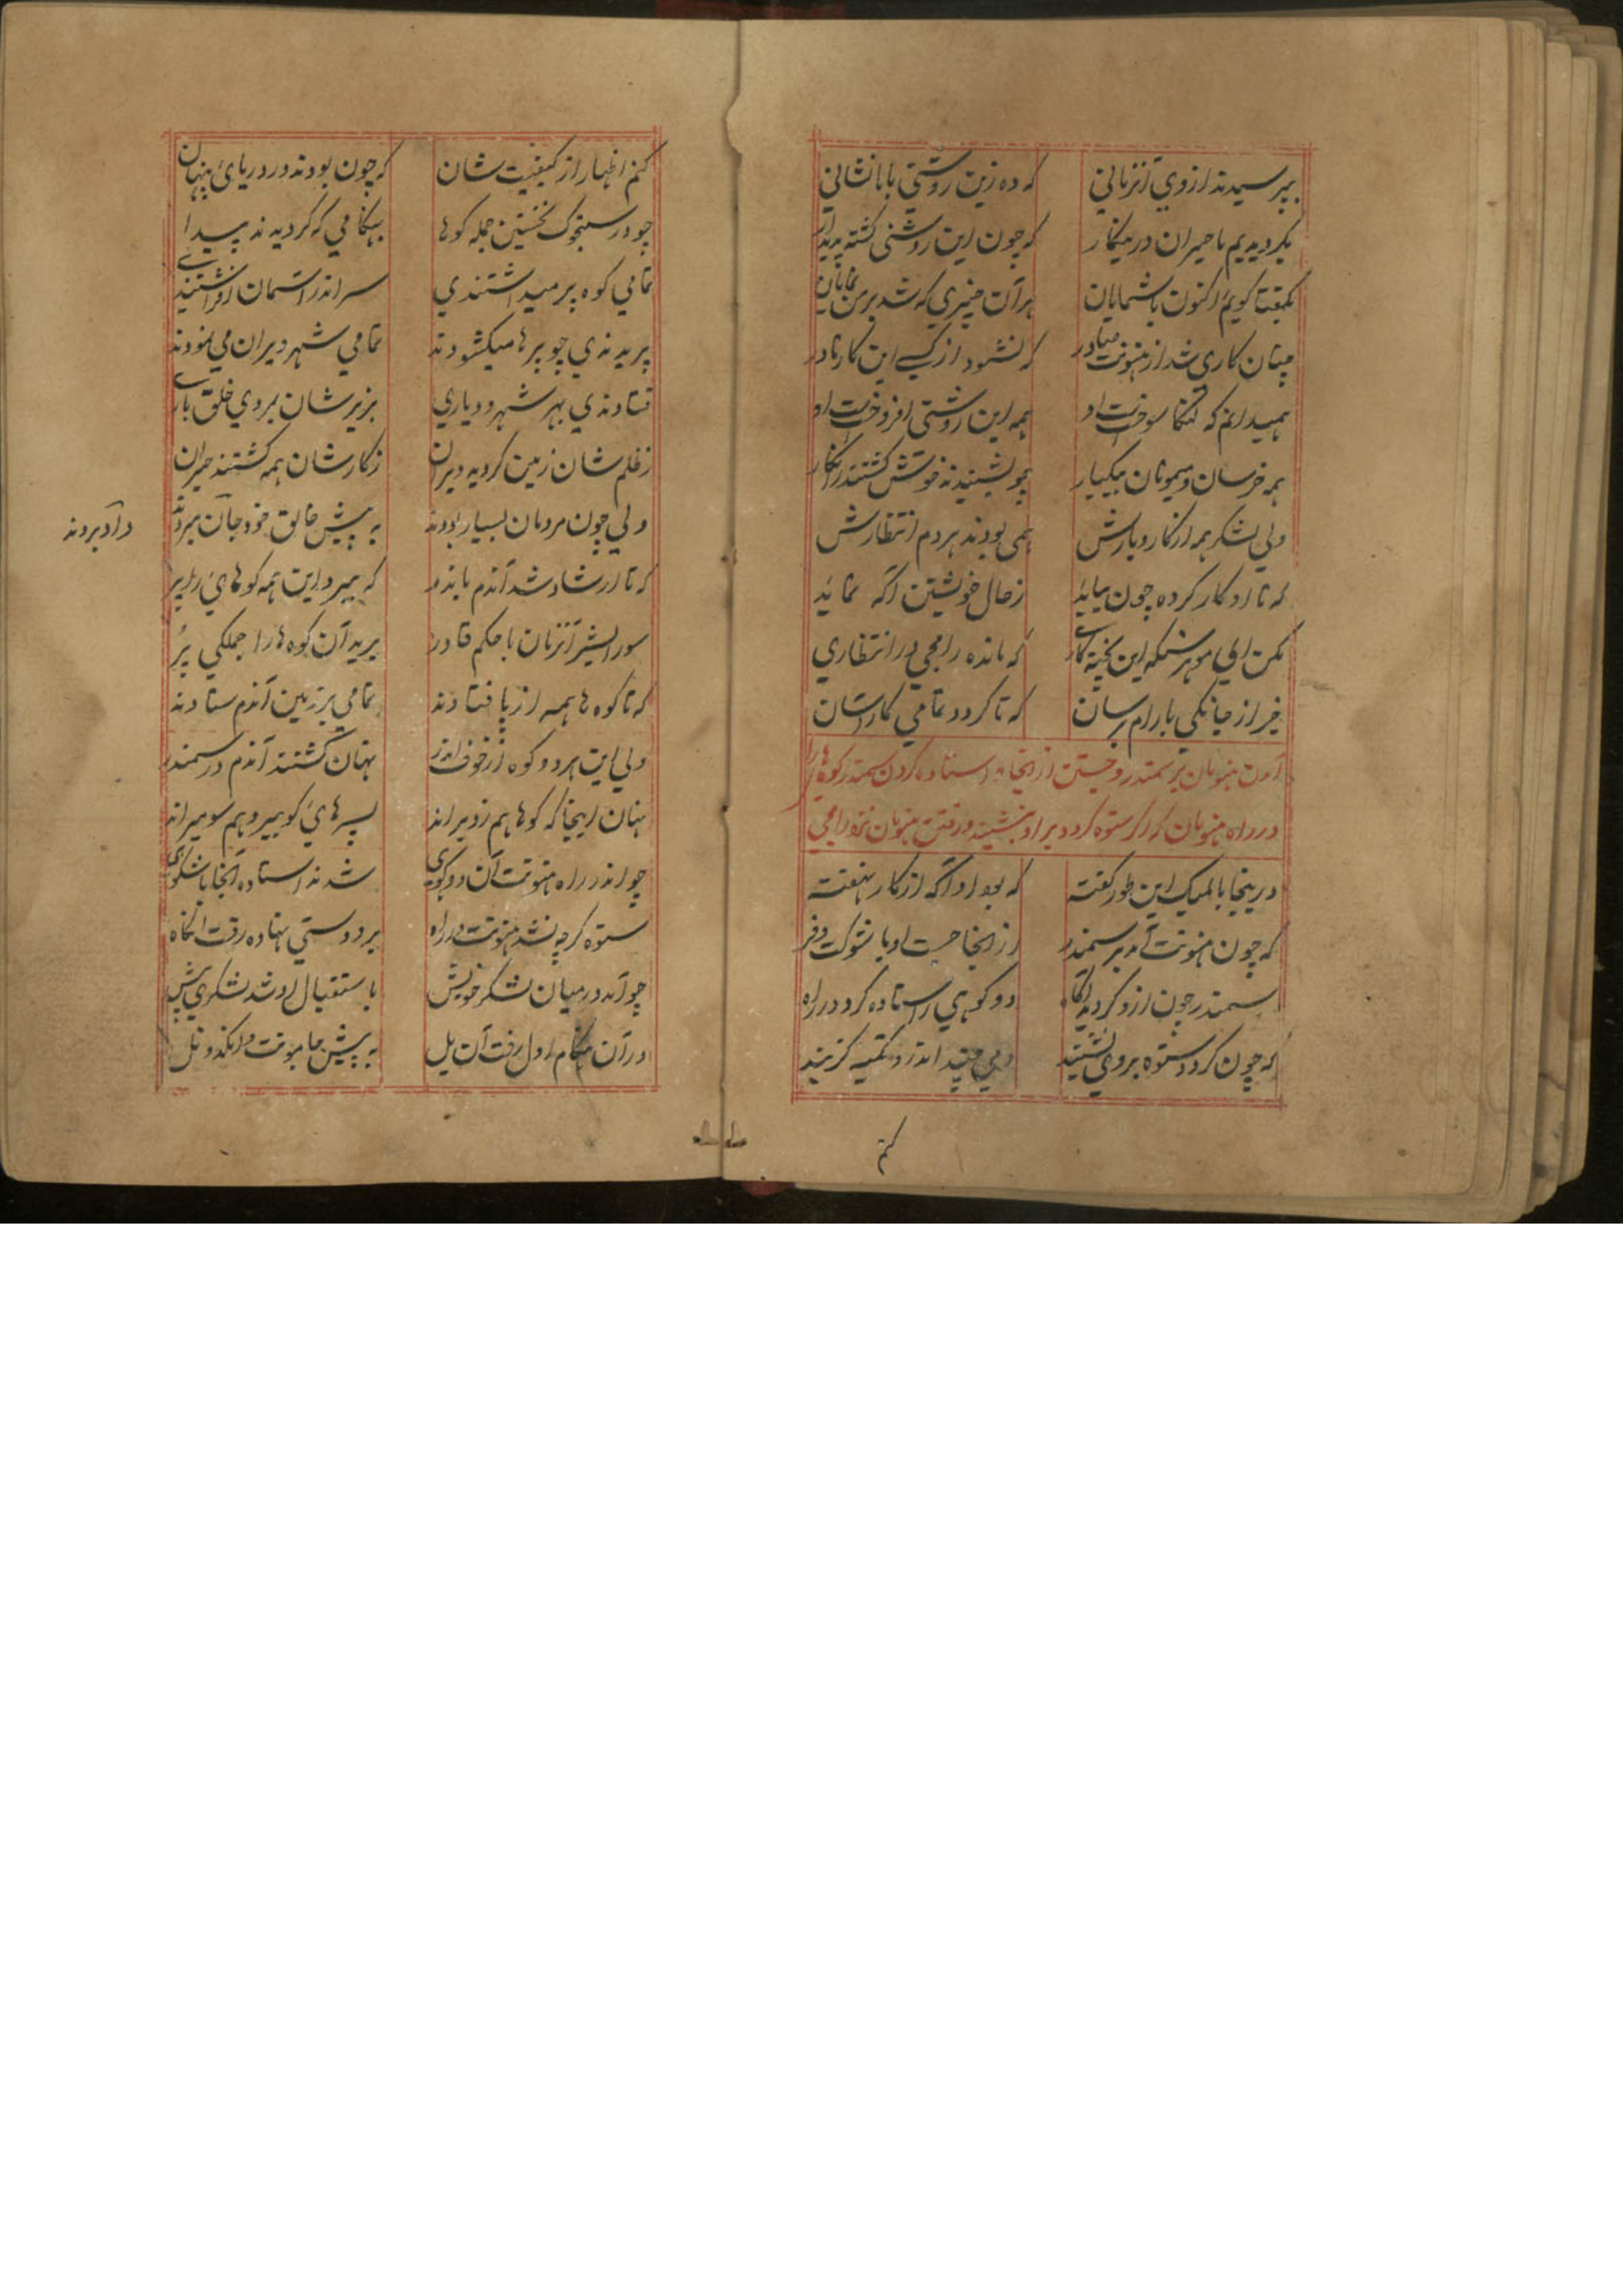 بپرسیدند ازوی آنزمانی که ده زین روشنی بامانشانی
بگردیدیم ما حیران درینکار که چون این روشنی کشته پدیدار
بگفتا گویم اکنون با شمایان هرآن چیزی که شد برمن نمایان
چنان کاری شد از هنونت صادر که نشنود از کسی این کار نادر
همیدانم که لنکا سوخت او همه این روشنی افروخت او
همه خرسان و میمونان بیکبار چو بشنیدند خوش کشتند زانکار
ولی لشکر همه از کاروبارش همی بودند هردم انتظارش
که تا او کار کرده چون بیاید زحال خویشتن آکه نماید
بکن ای مونر سنکه این پخته کاری که مانده رامجی در انتظاری
خبر از جانکی با رام برسان که تا کردد تمامی کار آسان
آمدن هنومان بر سمندر و جستن از آنجا و استاده کردن سمندر کوه ها را
در راه هنومان که اکر ستوه کردد بر او بنشیند و رفتن هنومان نزد رامجی
درینجا بالمیک این طور کفته که بود او آکه از کار نهفته
که چون هنونت آمد بر سمندر از آنجا جست او با شوکت و فر
سمندر چون ازو کردید آگاه دو کوهی راستاده کرد در راه
که چون کردد ستوه بروی نشیند دمی چند اندرو تکیه کزیند
کنم
کنم اظهار از کیفیت شان که چون بودند در دریای پنهان
چو در ستجوک نخستین جمله کوها بهنکامی که کردیدند پیدا
تمامی کوه پر میداشتندی سر اندر آسمان افراشتندی
پریدندی چو پرها میکشودند تمامی شهر ویران می نمودند
فتادندی بهر شهر و دیاری بزیرشان بمردی خلق باری
زظلم شان زمین کردید ویران زکارشان همه کشتند حیران
ولی چون مردمان بسیار بودند به پیش خالق خود جان سپردند
دادبردند
که تا ارشاد شد آندم باندر که ببرد این همه کوهای را پر
سورالیشر آنزمان با حکم قادر برید آن کوه ها را جملکی پر
که تا کوه ها همه از پا فتادند تمامی بر زمین آندم ستادند
ولی این هردو کوه از خوف اندر نهان کشتند آندم در سمندر
نهان اینجا که کوها هم زدیر اند پسرهای کوبیر و هم سومیر اند
چو اندر راه هنونت آن دو کوهی شدند استاده آنجا با شکوهی
ستوه کرچه نشد هنونت در راه بر او دستی نهاده رفت آنکاه
چو آمد در میان لشکر خویش باستقبال او شد لشکری پیش
در آن هنکام اول رفت آن یل به پیش جامونت و انکد و نل